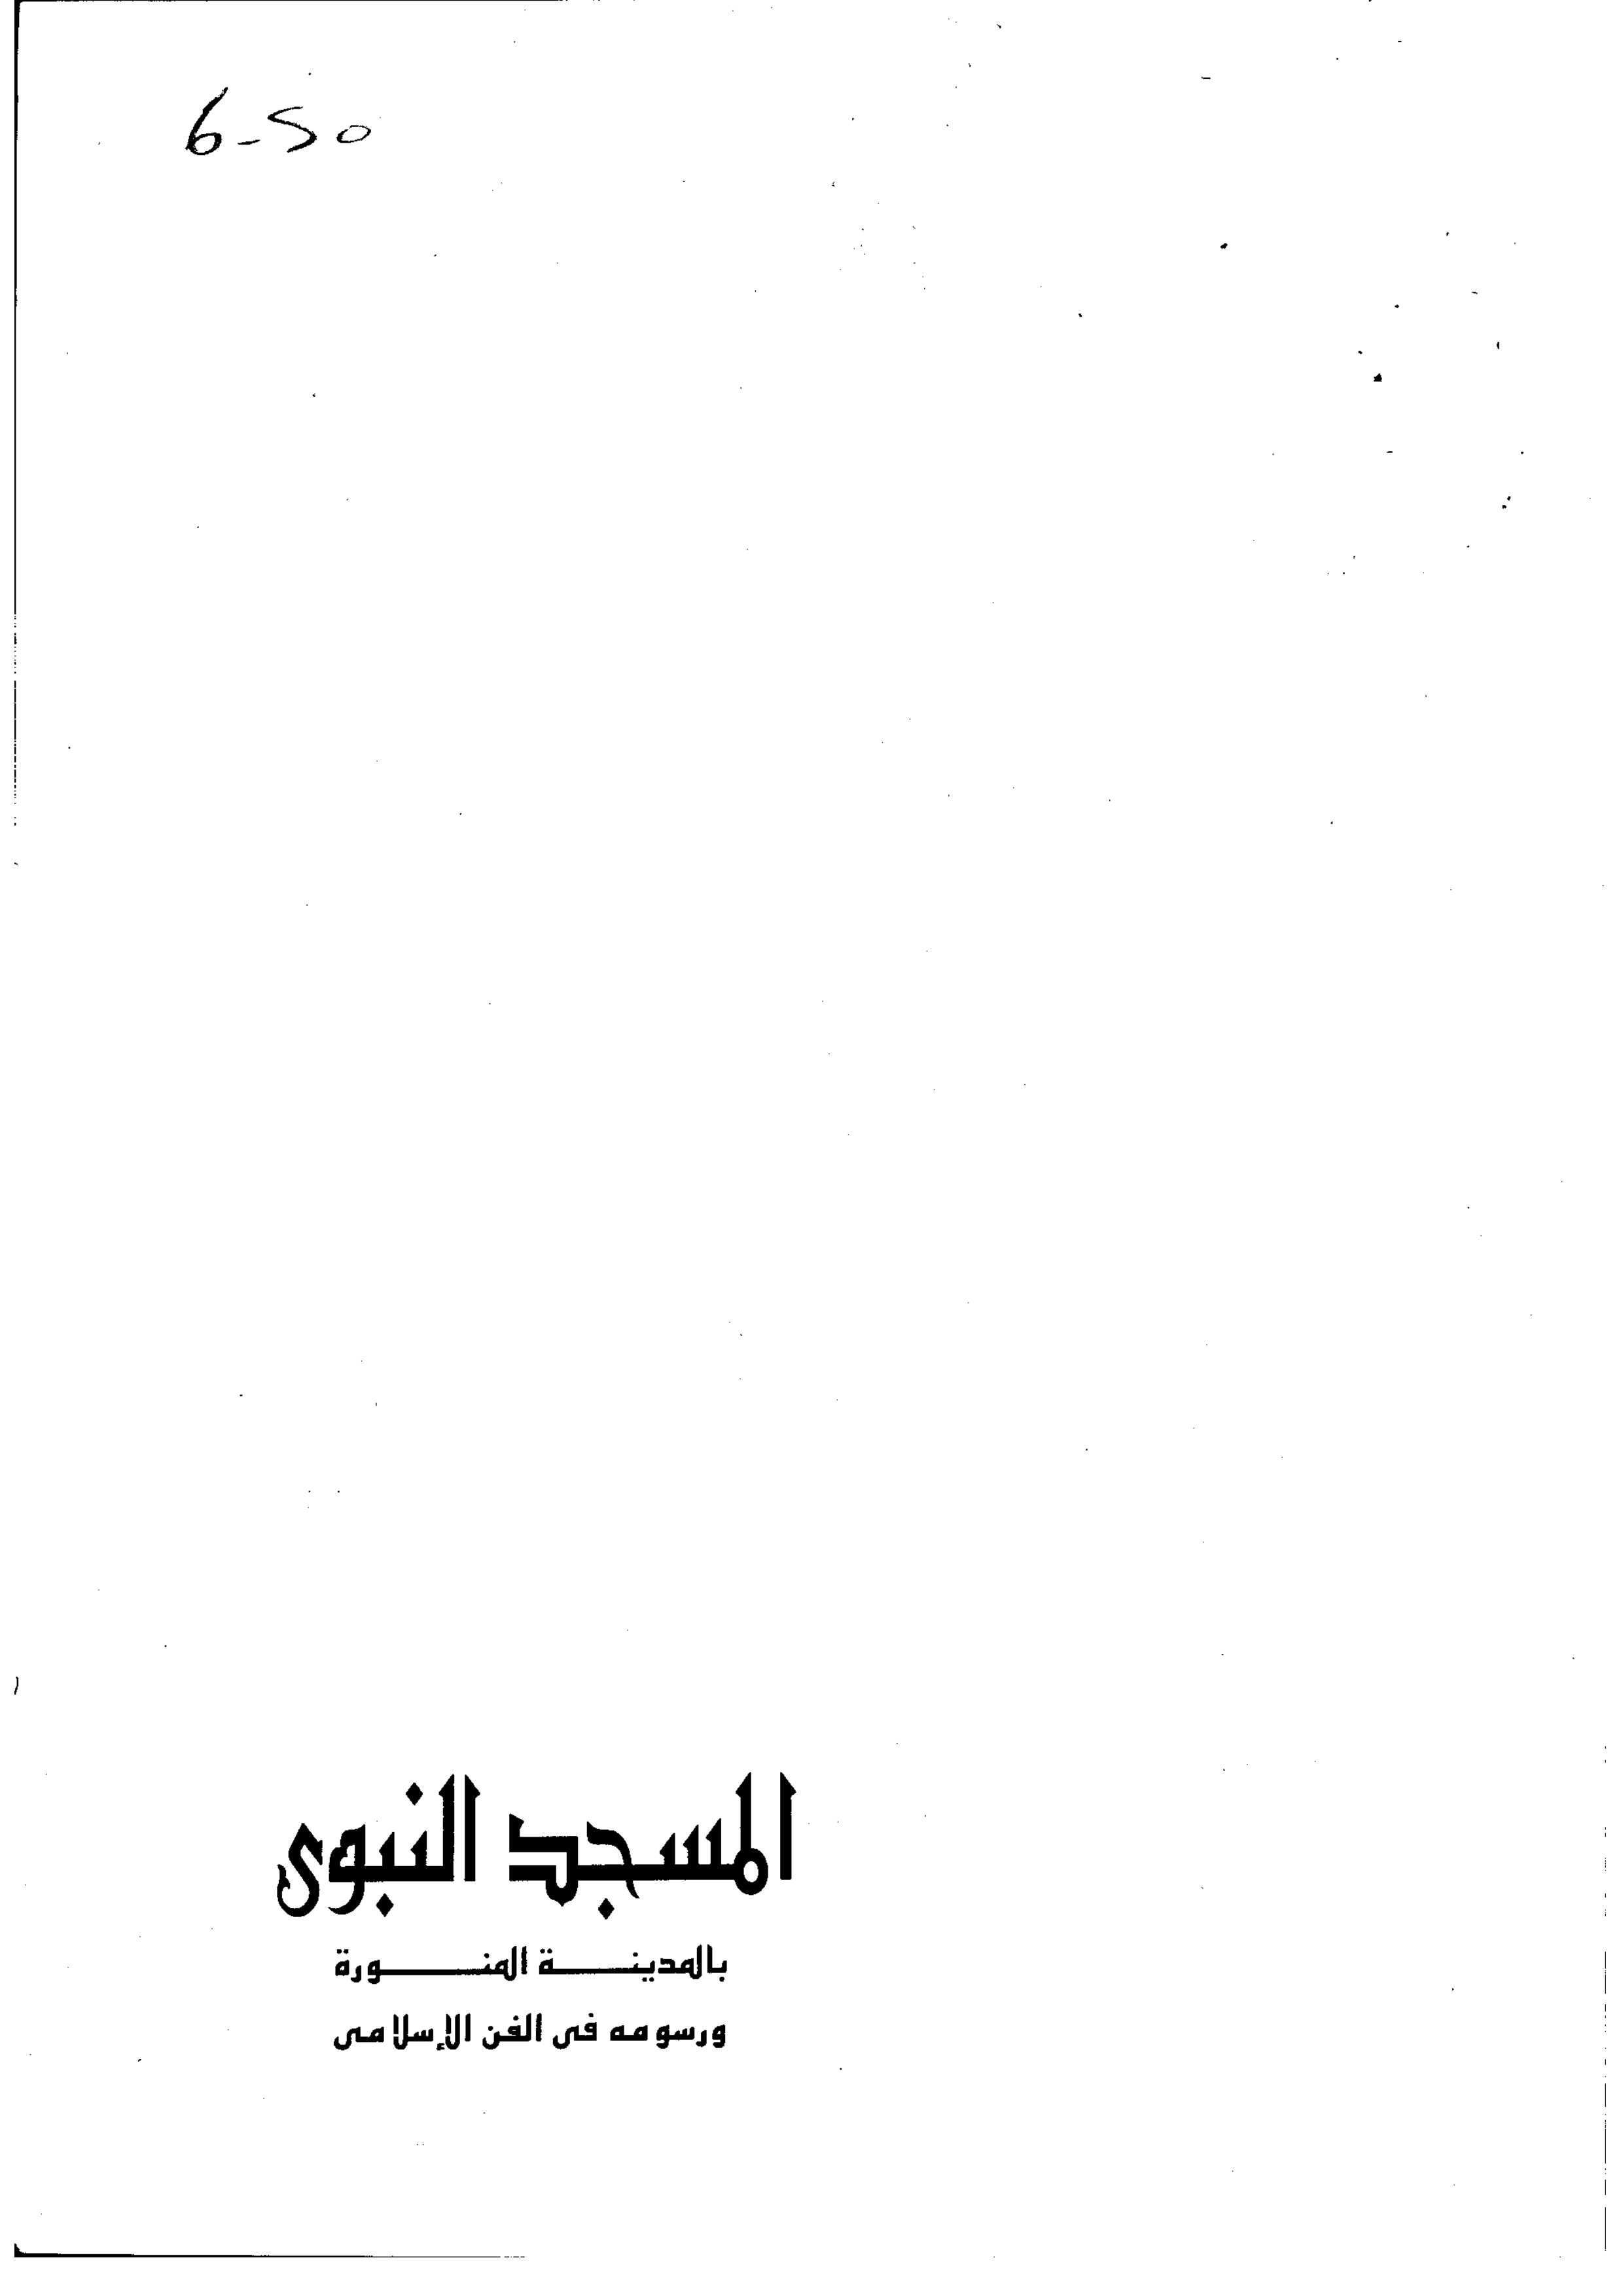 6-50
المسجد النبوى
بالمدينة المنورة
ورسومه فى الفن الإسلامى